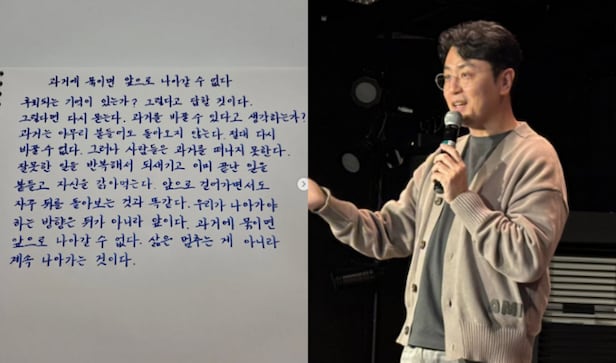 과거에 묶이면 앞으로 나아갈 수 없다
후회되는 기억이 있는가? 그렇다고 답할 것이다.
그렇다면 다시 묻는다. 과거를 바꿀 수 있다고 생각하는가?
과거는 아무리 붙들어도 돌아오지 않는다. 절대 다시
바꿀 수 없다. 그러나 사람들은 과거를 떠나지 못한다.
잘못한 일을 반복해서 되새기고 이미 끝난 일을
붙들고 자신을 갉아먹는다. 앞으로 걸어가면서도
자꾸 뒤를 돌아보는 것과 똑같다. 우리가 나아가야
하는 방향은 뒤가 아니라 앞이다. 과거에 묶이면
앞으로 나아갈 수 없다. 삶은 멈추는 게 아니라
계속 나아가는 것이다.
AMI